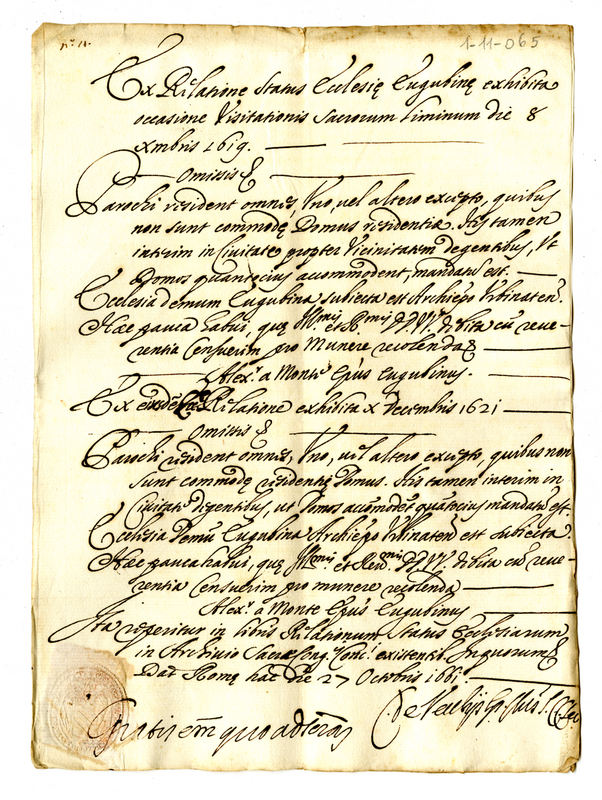 1-11-065
Ex Relatione Status Ecclesię Eugubinę exhibita
occasione Visitationis Sacrorum Liminum die 8
Xmbris 1619.
Omissis &
Parochi resident omnes, Uno, vel altero excepto, quibus
non sunt commodę Domus residentia. Iis tamen
interim in Civitate propter Vicinitatem degentibus, Ut
Domos quantocius accommodent, mandatũ est.
Ecclesia demum Eugubina subiecta est Archiepõ Urbinateñ.
Hæc pauca habui, quę Ill.mis et R.mis DD. VV. debita cũ reve-
rentia Censuerim pro Munere recolenda &
Alex.r a Monte Epũs Eugubinus.
Ex Relatione exhibita X Decembris 1621
Omissis &
Parochi resident omnes, Uno, vel altero excepto, quibus non
sunt commodę residentię Domus. Iis tamen interim in
Civitate degentibus, ut Domos accomodẽt quantocius mandatũ est.
Ecclesia Demũ Eugubina Archiepõ Urbinateñ est subiecta.
Hæc pauca habui, quę Ill.mis et Reu.mis DD. VV. debita cũ reve-
rentia Censuerim pro munere recolenda
Alex.r a Monte Epũs Eugubinus
Ita reperitur in libris Relationum Status Ecclesiarum
in Archivio Sacræ Cong. Conc. existentiũ. In quorum &
Dat. Romę hac die 27 Octobris 1661.
Gratis etm̃ quo ad